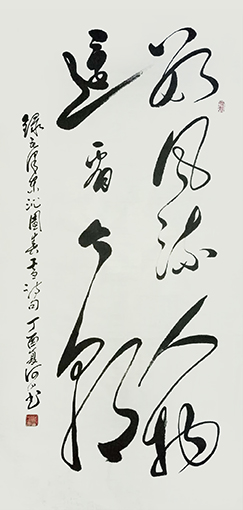 數風流人物
還看今朝
錄毛澤東沁園春雪詩句丁酉夏河書